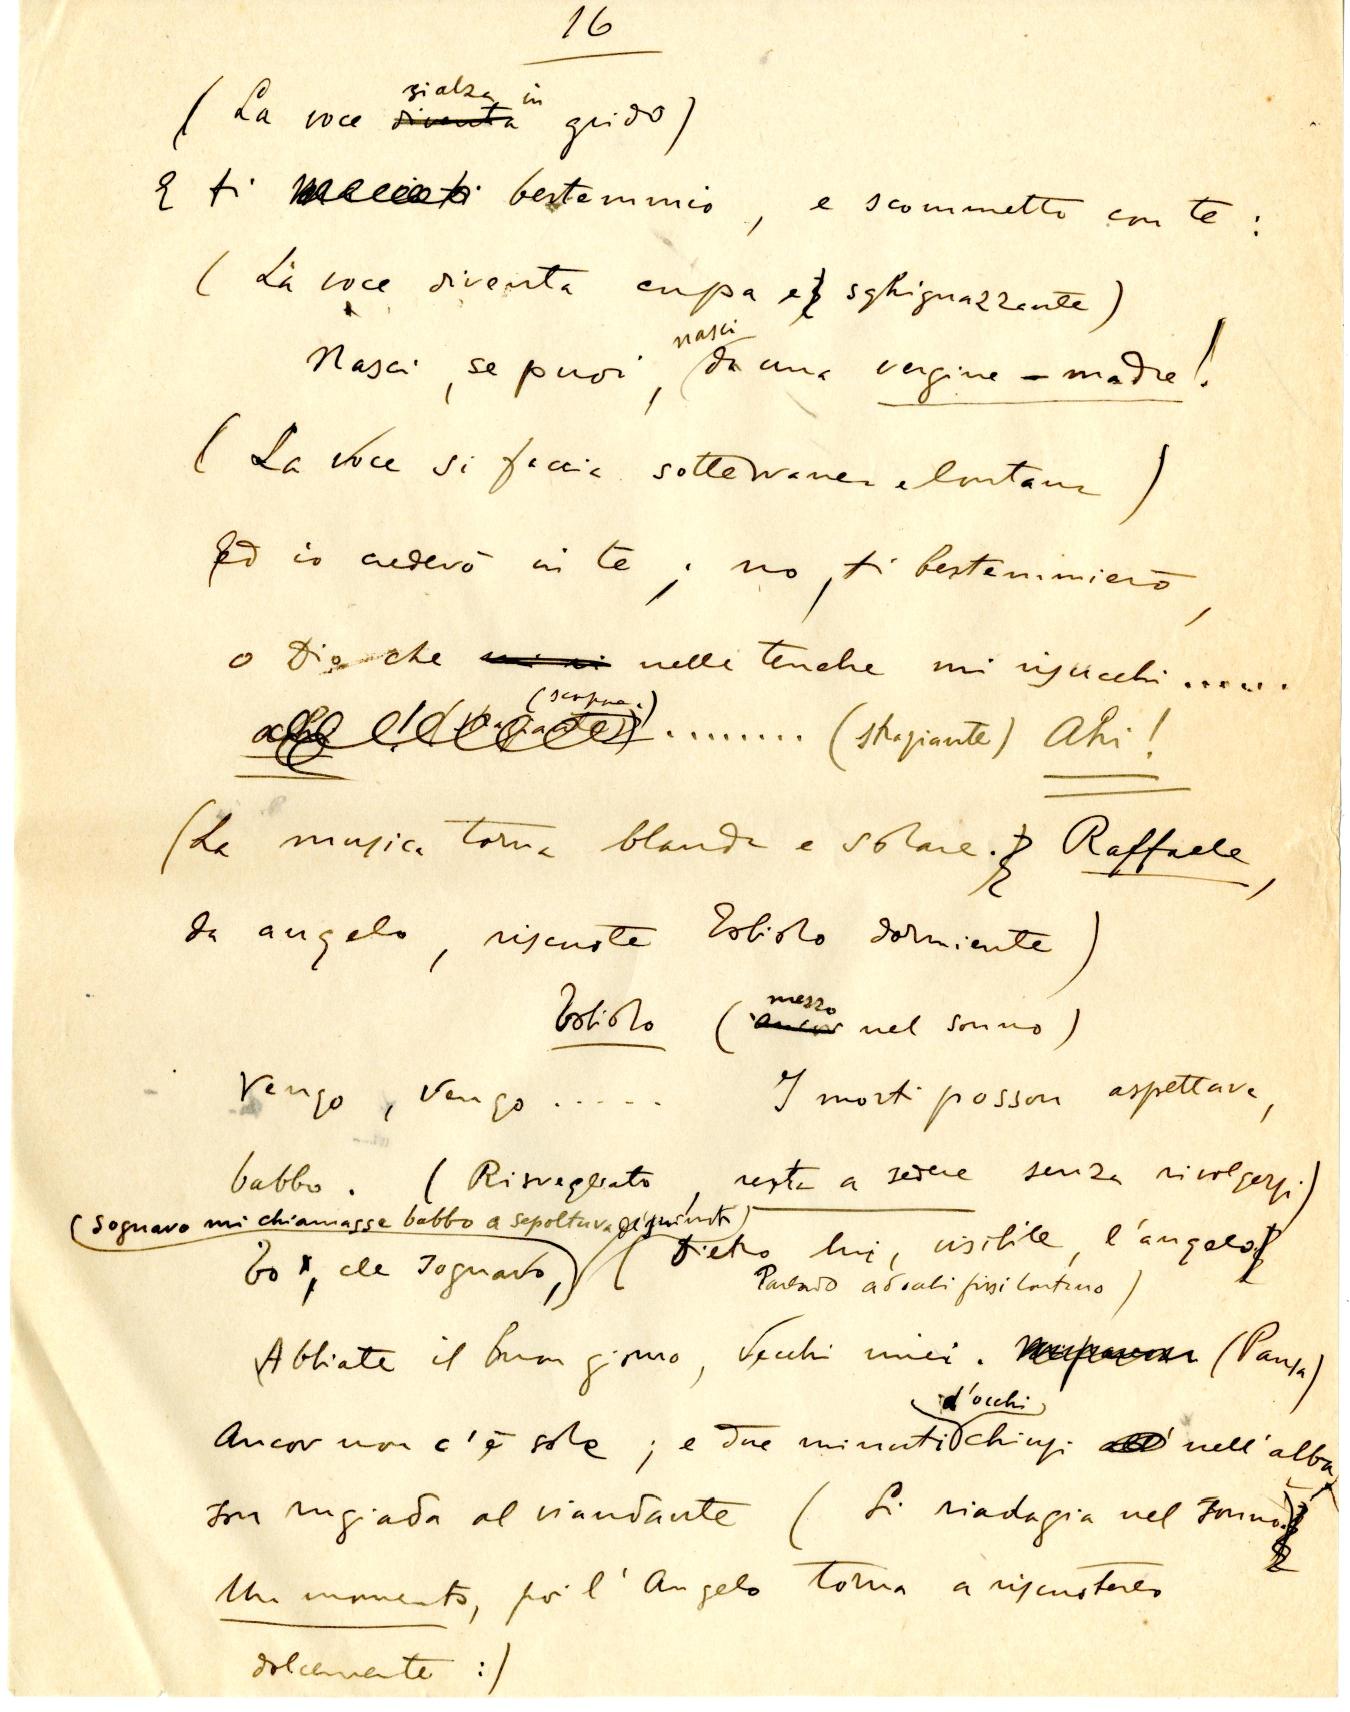 16
si alza in
( La voce diventa grido)
E ti bestemmio, e scommetto con te :
( La voce diventa cupa e sghignazzante)
nasci
Nasci, se puoi, da una vergine - madre!
( La voce si faccia sotterranea e lontana )
Ed io crederò in te ; no, ti bestemmierò,
o Dio che nelle tenebre mi risucchi ......
......... (straziante) Ahi!
(La musica torna blanda e solare. Raffaele,
da angelo, riscuote Tobiolo dormiente)
mezzo
Tobiolo ( ancor nel sonno)
Vengo, vengo ..... I morti posson aspettare,
babbo. ( Risvegliato, resta a sedere senza rivolgersi)
( sognavo mi chiamasse babbo a sepoltura
To', che sognavo,) ( Dietro lui, visibile, l'angelo
Parlando ad occhi fissi lontano )
Abbiate il buon giorno, vecchi miei. (Pausa)
d'occhi
Ancor non c'è sole ; e due minuti chiusi nell'alba
son rugiada al viandante ( Si riadagia nel sonno.)
Un momento, poi l'Angelo torna a riscuoterlo
dolcemente :)